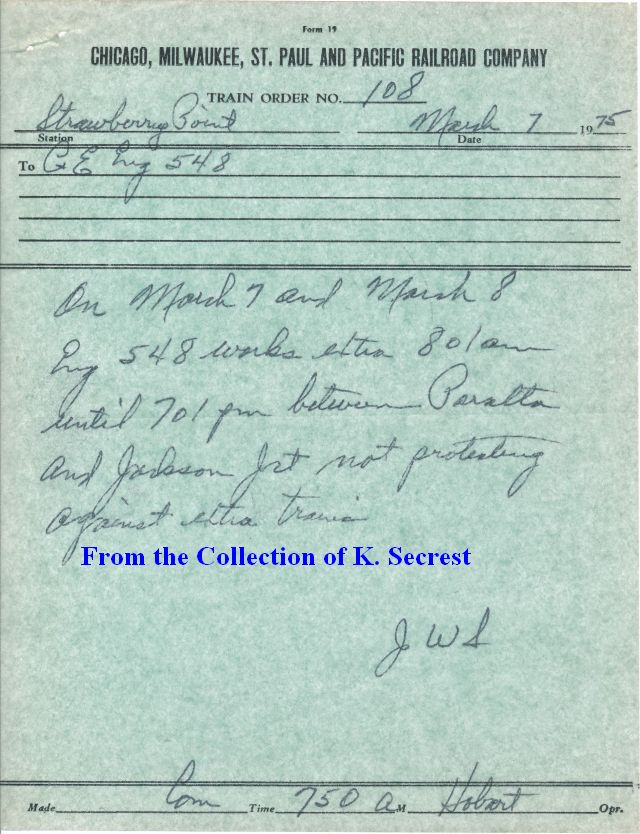 Form 19
CHICAGO, MILWAUKEE, ST. PAUL AND PACIFIC RAILROAD COMPANY
TRAIN ORDER NO. 108
Strawberry Point March 7 1975
Station Date
To C&E Eng 548
On March 7 and March 8
Eng 548 works extra 801 am
until 701 pm between Paralta
and Jackson Jct not protecting
against extra trains
From the Collection of K. Secrest
J W S
Made Com Time 750 A M Hobart Opr.